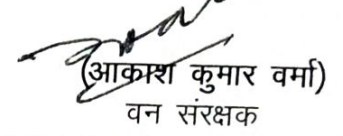 (आकाश कुमार वर्मा)
वन संरक्षक